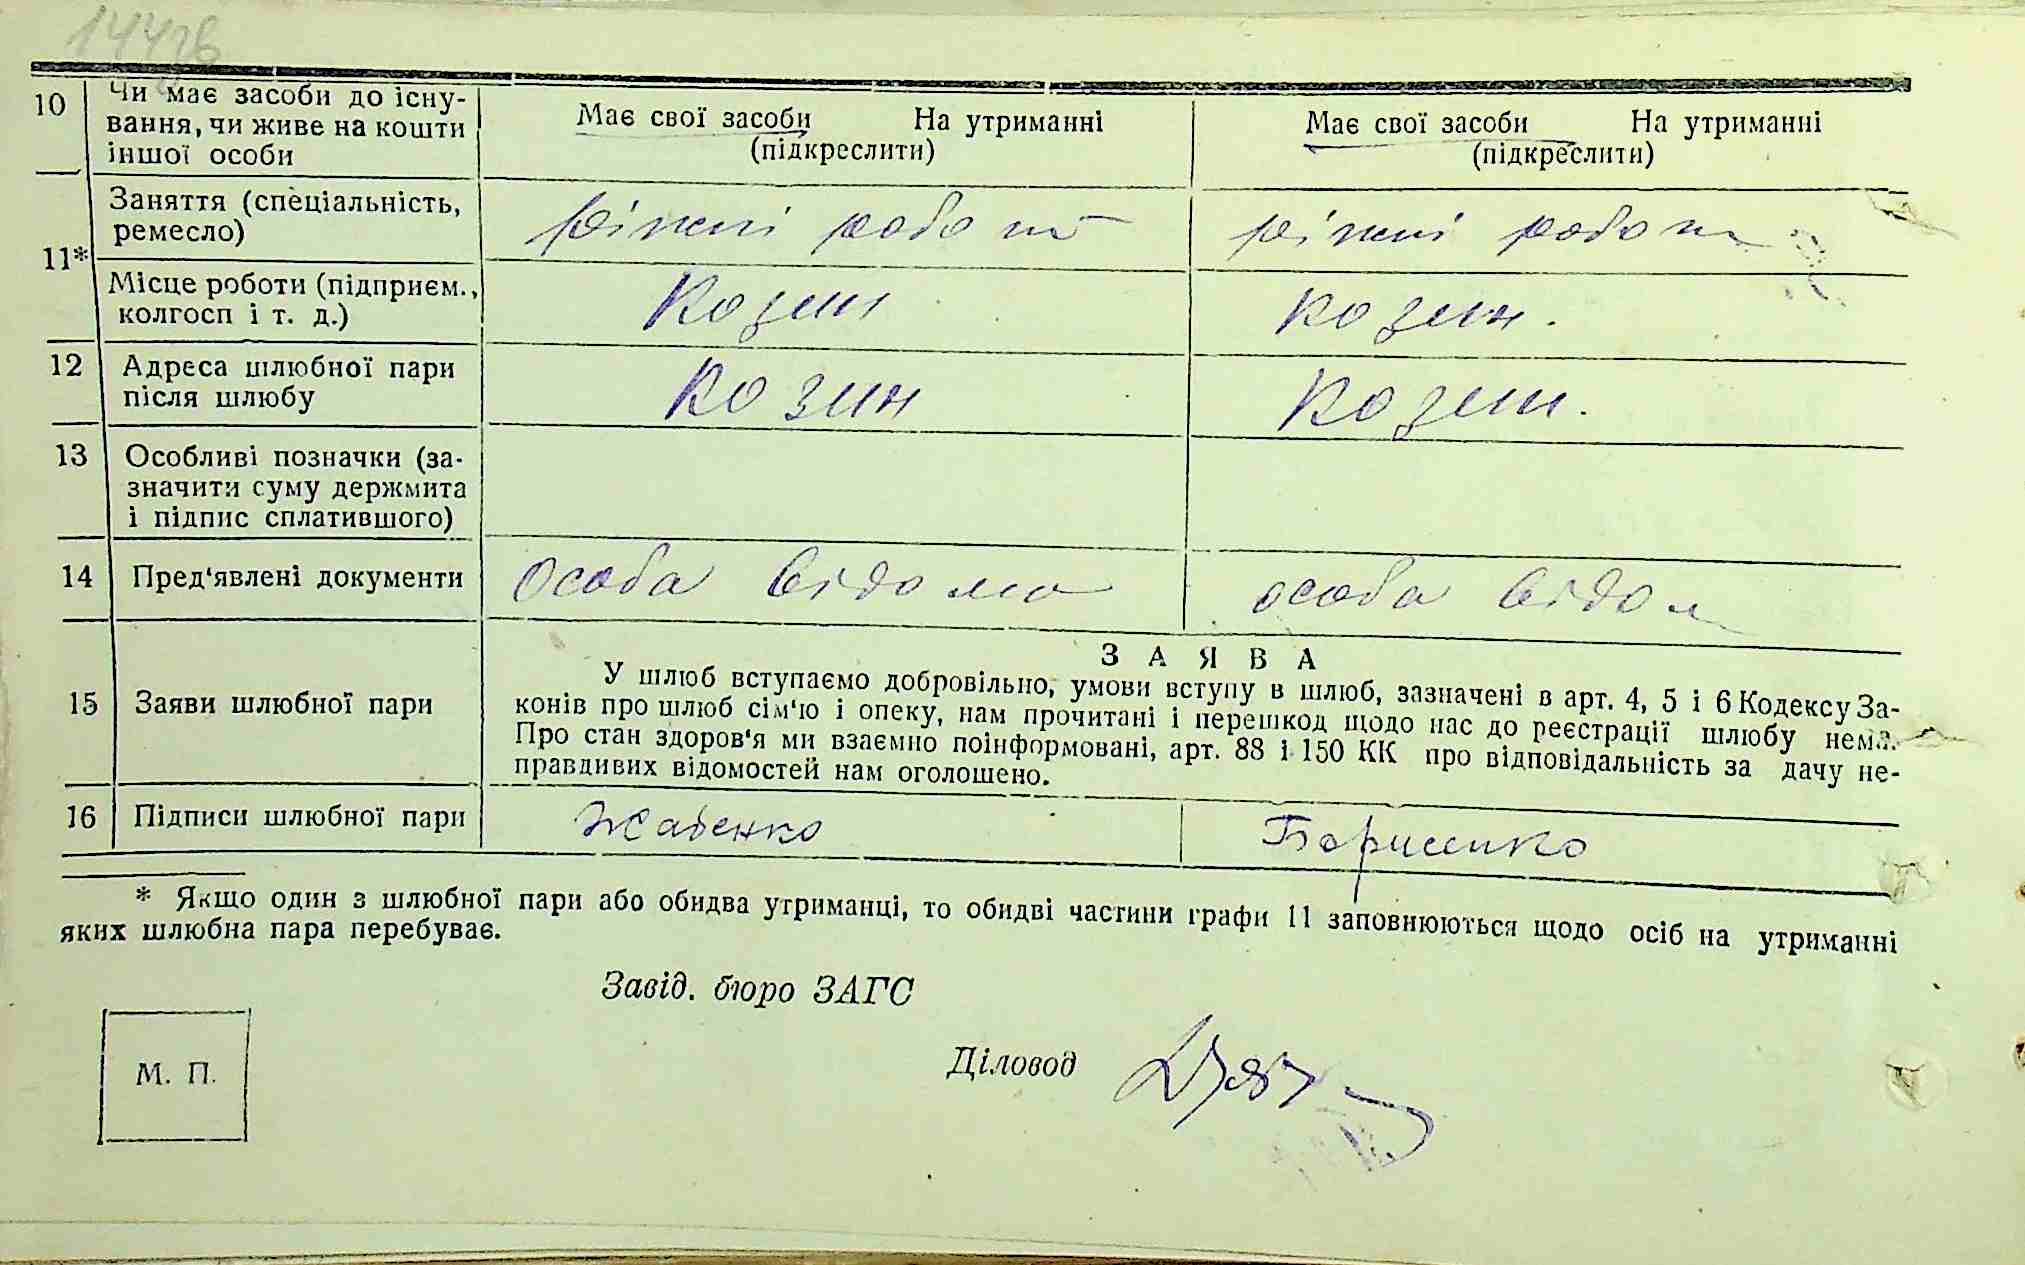 144зв
10 Чи має засоби до існу-
вання, чи живе на кошти
іншої особи
Має свої засоби На утриманні
(підкреслити)
Має свої засоби На утриманні
(підкреслити)
11*
Заняття (спеціальність,
ремесло)
ріжні роботи
ріжні роботи
Місце роботи (підприєм.,
колгосп і т. д.)
Козин
Козин.
12 Адреса шлюбної пари
після шлюбу
Козин
Козин.
13 Особливі позначки (за-
значити суму держмита
і підпис сплатившого)
14 Пред'явлені документи
Особа відома
особа відом
15 Заяви шлюбної пари
ЗАЯВА
У шлюб вступаємо добровільно, умови вступу в шлюб, зазначені в арт. 4, 5 і 6 Кодексу За-
конів про шлюб сім'ю і опеку, нам прочитані і перешкод щодо нас до реєстрації шлюбу нема.
Про стан здоров'я ми взаємно поінформовані, арт. 88 і 150 КК про відповідальність за дачу не-
правдивих відомостей нам оголошено.
16 Підписи шлюбної пари
Жабенко
Борисенко
* Якщо один з шлюбної пари або обидва утриманці, то обидві частини графи 11 заповнюються щодо осіб на утриманні
яких шлюбна пара перебуває.
Завід. бюро ЗАГС
Діловод
М. П.